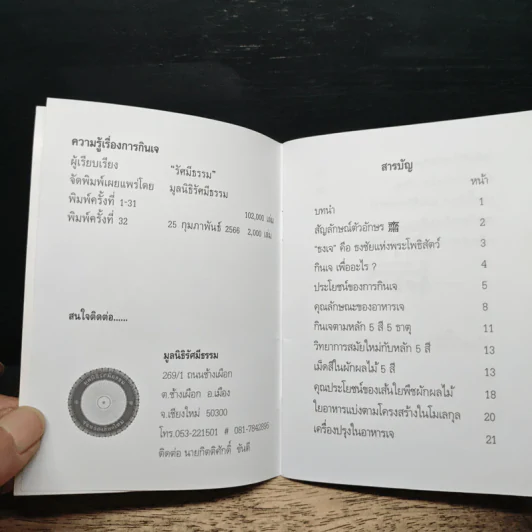 ความรู้เรื่องการกินเจ
ผู้เรียบเรียง "รัศมีธรรม"
จัดพิมพ์เผยแพร่โดย มูลนิธิรัศมีธรรม
พิมพ์ครั้งที่ 1-31 102,000 เล่ม
พิมพ์ครั้งที่ 32 25 กุมภาพันธ์ 2566 2,000 เล่ม
สนใจติดต่อ......
มูลนิธิรัศมีธรรม
269/1 ถนนช้างเผือก
ต.ช้างเผือก อ.เมือง
จ.เชียงใหม่ 50300
โทร.053-221501 # 081-7842695
ติดต่อ นายกิตติศักดิ์ ขันตี
สารบัญ
หน้า
บทนำ 1
สัญลักษณ์ตัวอักษร 齋 2
"ธงเจ" คือ ธงชัยแห่งพระโพธิสัตว์ 3
กินเจ เพื่ออะไร ? 4
ประโยชน์ของการกินเจ 5
คุณลักษณะของอาหารเจ 8
กินเจตามหลัก 5 สี 5 ธาตุ 11
วิทยาการสมัยใหม่กับหลัก 5 สี 13
เม็ดสีในผักผลไม้ 5 สี 13
คุณประโยชน์ของเส้นใยพืชผักผลไม้ 18
ใยอาหารแบ่งตามโครงสร้างในโมเลกุล 20
เครื่องปรุงในอาหารเจ 21